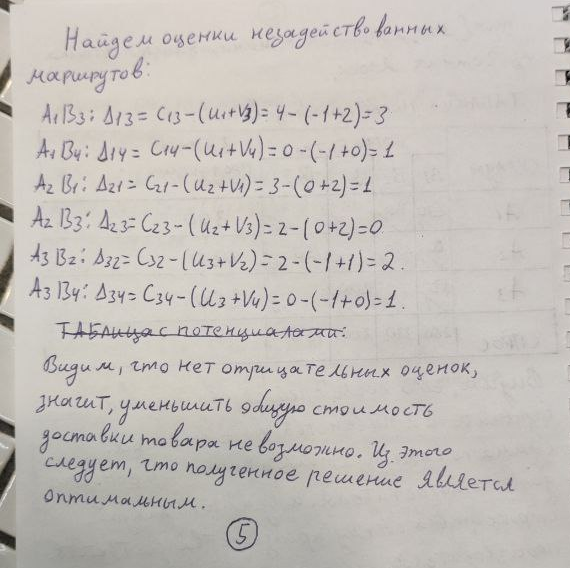 Найдем оценки незадействованных
маршрутов:
A1B3: Δ13 = C13 - (U1+V3) = 4 - (-1+2) = 3
A1B4: Δ14 = C14 - (U1+V4) = 0 - (-1+0) = 1
A2B1: Δ21 = C21 - (U2+V1) = 3 - (0+2) = 1
A2B3: Δ23 = C23 - (U2+V3) = 2 - (0+2) = 0
A3B2: Δ32 = C32 - (U3+V2) = 2 - (-1+1) = 2.
A3B4: Δ34 = C34 - (U3+V4) = 0 - (-1+0) = 1.
Таблица с потенциалами:
Видим, что нет отрицательных оценок,
значит, уменьшить общую стоимость
доставки товара невозможно. Из этого
следует, что полученное решение является
оптимальным.
5